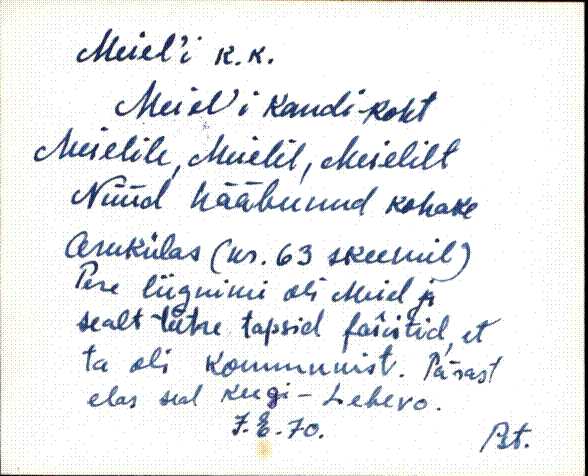 Meiel'i k.k.
Meiel'i kandi-koht
Meielile, Meielil, Meielilt
Nüüd hääbunud kohake
Arukülas (nr. 63 skeemil)
Pere liignimi oli Meiel ja
sealt tütre tapsid fašistid, et
ta oli kommunist. Pärast
elas seal keegi - Lehevo.
7.E.70. Bt.